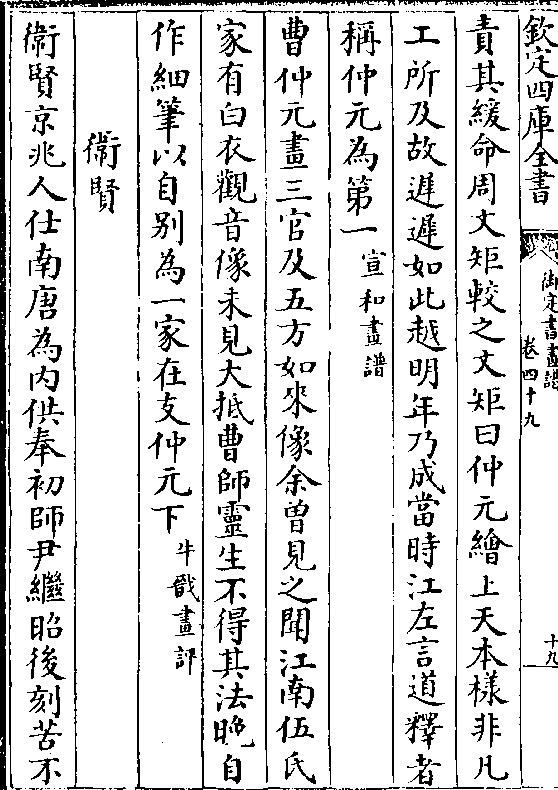 欽定四庫全書
御定書畫譜
卷四十九
十九
責其緩命周文矩較之文矩曰仲元繪上天本樣非凡
工所及故遲遲如此越明年乃成當時江左言道釋者
稱仲元為第一宣和畫譜
曹仲元畫三官及五方如來像余曾見之聞江南伍氏
家有白衣觀音像未見大抵曹師靈生不得其法晚自
作細筆以自别為一家在支仲元下牛戩畫評
衛賢
衛賢京兆人仕南唐為内供奉初師尹繼昭後刻苦不